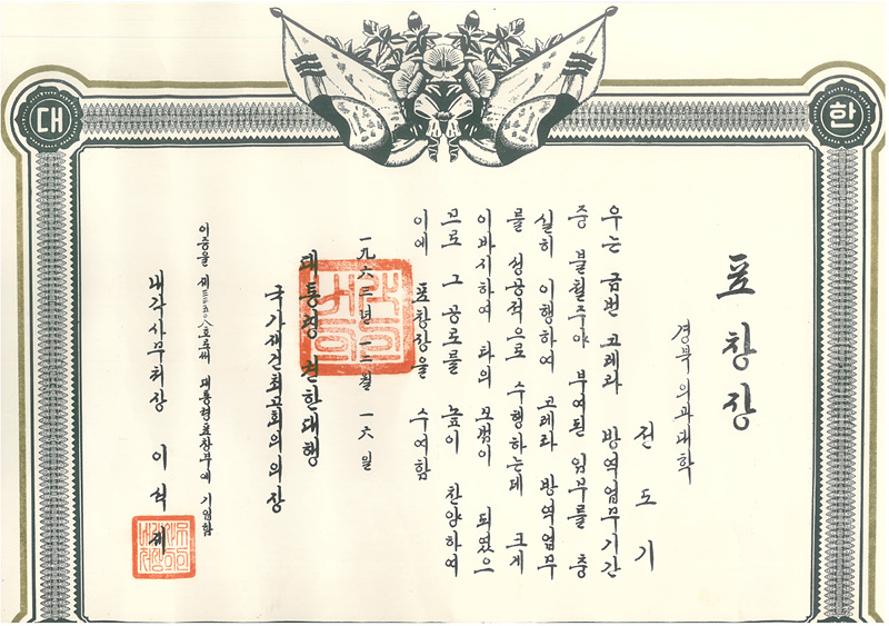 대 한
표창장
경북의과대학
전도기
우는 금번 코레라 방역업무기간
중 불철주야 부여된 임무를 충
실히 이행하여 코레라 방역업무
를 성공적으로 수행하는데 크게
이바지하여 타의 모범이 되었으
므로 그 공로를 높이 찬양하여
이에 표창장을 수여함
一九六三년 一二월 一六일
대통령 권한대행
국가재건최고회의의장
이증을 호로써 대통령표창부에 기입함
내각사무처장 이석제